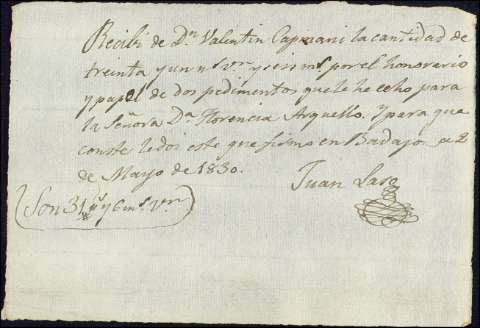 Recibi de Dn. Valentin Capmani la cantidad de
treinta y un rs. vn. y seis ms. por el honorario
y papel de dos pedimentos que le he echo para
la Señora Da. Florencia Arguello. Y para que
conste le doi este que firmo en Badajo a 2
de Mayo de 1830.
Juan Laso
Son 31 rs. y 6 ms. vn.